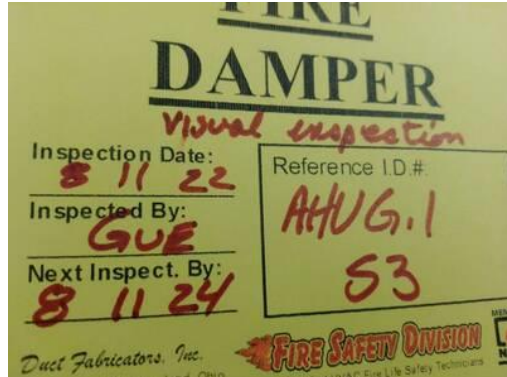 FIRE
DAMPER
Visual inspection
Inspection Date:
8 11 22
Inspected By:
GUE
Next Inspect. By:
8 11 24
Reference I.D.#:
AHU G.1
53
Duct Fabricators, Inc.
FIRE SAFETY DIVISION
HVAC Fire Life Safety Technicians